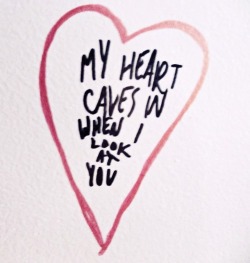 MY HEART
CAVES IN
WHEN I
LOOK
AT
YOU